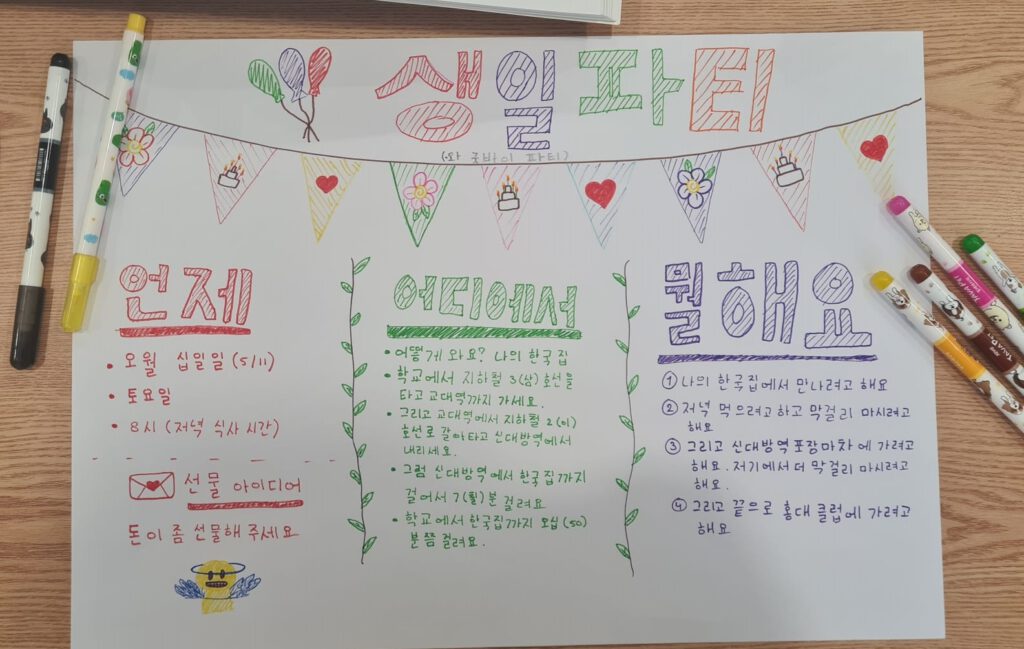 생일파티
파티)
언제
• 오월 십일일 (5/11)
• 토요일
• 8시 (저녁 식사 시간)
선물 아이디어
돈이 좀 선물해 주세요
어디에서
• 어떻게 와요? 나의 한국 집
• 학교에서 지하철 3(삼) 호선을
타고 교대역까지 가세요.
• 그리고 교대역에서 지하철 2(이)
호선로 갈아타고 신대방역에서
내리세요.
• 그럼 신대방역에서 한국 집까지
걸어서 7(칠)분 걸려요
• 학교에서 한국집까지 오십 (50)
분쯤 걸려요.
뭘해요
① 나의 한국집에서 만나려고 해요
② 저녁 먹으려고하고 막걸리 마시려고
해요
③ 그리고 신대방역 포장마차에 가려고
해요. 저기에서 더 막걸리 마시려고
해요.
④ 그리고 끝으로 홍대 클럽에 가려고
해요